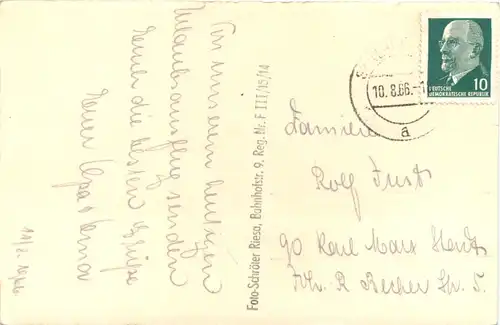 Von unserem heutigen
Urlaubsausflug senden
Euch die besten Grüße
Foto-Schröter Riesa, Bahnhofstr. 9. Reg. Nr. F III/15/14
10.8.66.-
a
DEUTSCHE
DEMOKRATISCHE REPUBLIK
10
Familie
Rolf Just
90 Karl Marx Stadt
Joh. R. Becher Str. 5